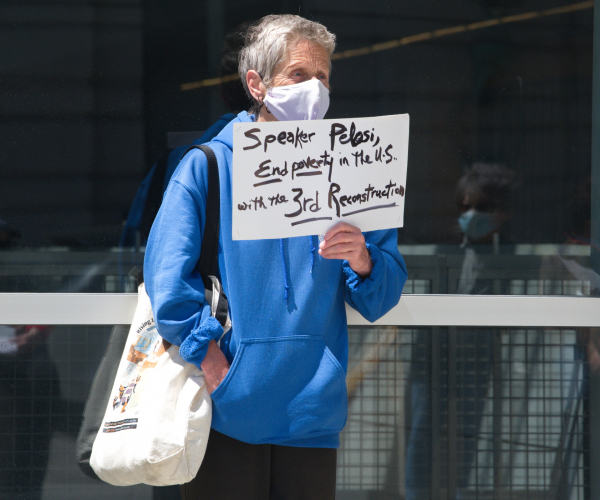 Speaker Pelosi,
End poverty in the U.S.
with the 3rd Reconstruction